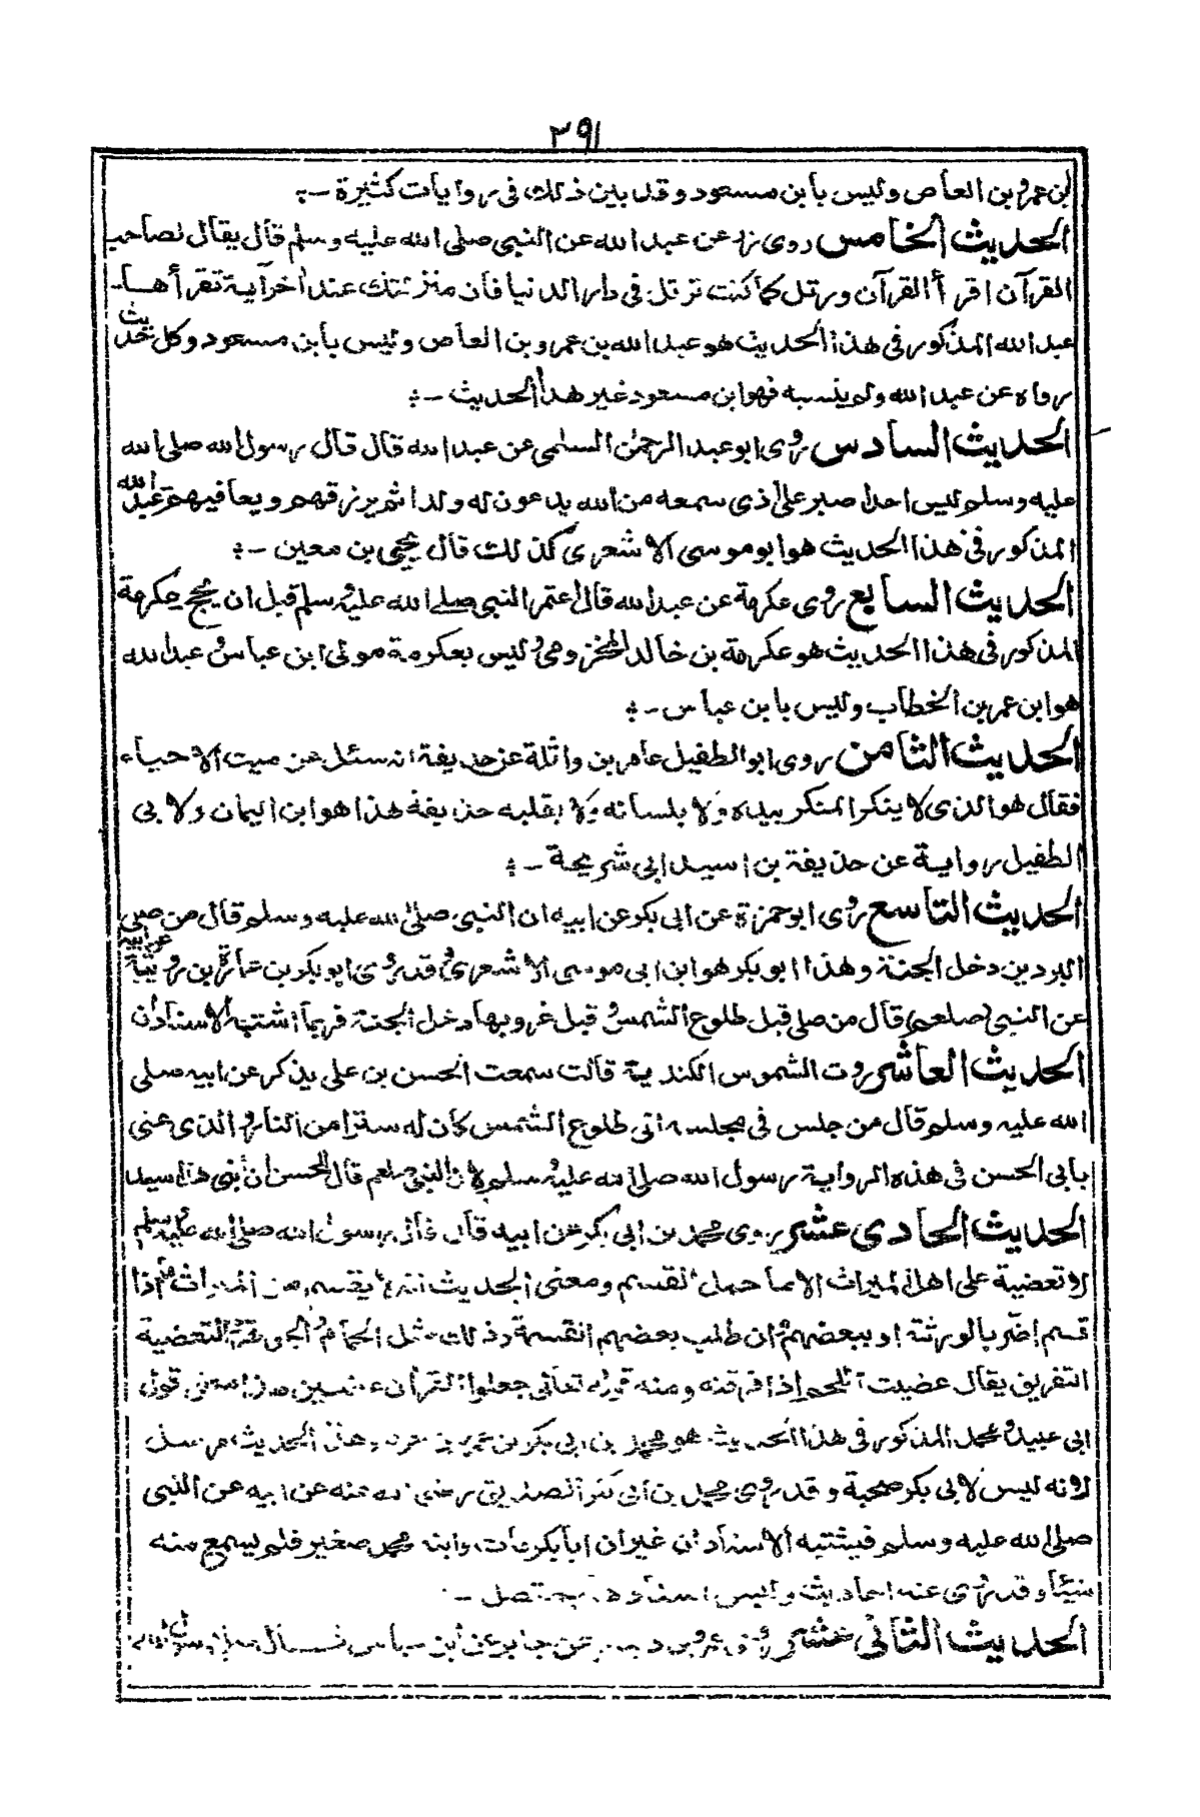 ٣٩١
بن عمرو بن العاص وليس بابن مسعود وقد بين ذلك فى روايات كثيرة -:
الحديث الخامس روى زر عن عبد الله عن النبى صلى الله عليه وسلم قال يقال لصاحب
القرآن اقرأ القرآن ورتل كما كنت ترتل فى دار الدنيا فان منزلتك عند اخر آية تقرأها -
عبد الله المذكور فى هذا الحديث هو عبد الله بن عمرو بن العاص وليس بابن مسعود وكل حديث
رواه عن عبد الله ولم ينسبه فهو ابن مسعود غير هذا الحديث -:
الحديث السادس روى ابو عبد الرحمن السلمى عن عبد الله قال قال رسول الله صلى الله
عليه وسلم ليس احدا صبر على اذى سمعه من الله يدعون له ولدا ثم يرزقهم ويعافيهم وعبد الله
المذكور فى هذا الحديث هو ابو موسى الاشعرى كذلك قال يحيى بن معين -:
الحديث السابع روى عكرمة عن عبد الله قال اعتمر النبى صلى الله عليه وسلم قبل ان يحج عكرمة
المذكور فى هذا الحديث هو عكرمة بن خالد المخزومى وليس بعكرمة مولى ابن عباس وعبد الله
هو ابن عمر بن الخطاب وليس بابن عباس -:
الحديث الثامن روى ابو الطفيل عامر بن واثلة عن حذيفة انه سئل عن ميت الاحياء
فقال هو الذى لا ينكر المنكر بيده ولا بلسانه ولا بقلبه حذيفة هذا هو ابن اليمان ولابى
الطفيل رواية عن حذيفة بن اسيد ابى شريحة -:
الحديث التاسع روى ابو حمزة عن ابى بكر عن ابيه ان النبى صلى الله عليه وسلم قال من صلى
البردين دخل الجنة وهذا ابو بكر هو ابن ابى موسى الاشعرى وقد روى ابو بكر بن عمارة بن رويبة عن ابيه
عن النبى (صلعم) قال من صلى قبل طلوع الشمس وقبل غروبها دخل الجنة فربما اشتبه الاسنادان
الحديث العاشر روت الشموس الكندية قالت سمعت الحسن بن على يذكر عن ابيه صلى
الله عليه وسلم قال من جلس فى مجلسه الى طلوع الشمس كان له سترا من النار والذى عنى
بابى الحسن فى هذه الرواية رسول الله صلى الله عليه وسلم لان النبى صلعم قال للحسن ان ابنى هذا سيد
الحديث الحادى عشر روى محمد بن ابى بكر عن ابيه قال قال رسول الله صلى الله عليه وسلم
لا تعضية على اهل الميراث الا ما حمل القسم ومعنى الحديث انه لا يقسم من الميراث شئ اذا
قسم اضر بالورثة او ببعضهم وان طلب بعضهم القسمة وذلك مثل الحمام والجوهرة والتعضية
التفريق يقال عضيت اللحم اذا فرقته ومنه قوله تعالى جعلوا القرآن عضين هذا معنى قول
ابى عبيد ومحمد المذكور فى هذا الحديث هو محمد بن ابى بكر بن عمرو بن حزم وهذا الحديث مرسل
لانه ليس لابى بكر صحبة وقد روى محمد بن ابى بكر الصديق رضى الله عنه عن ابيه عن النبى
صلى الله عليه وسلم فيشتبه الاسنادان غير ان ابا بكر مات وابنه محمد صغير فلم يسمع منه
شيئا وقد روى عنه احاديث وليس اسنادها بمتصل -
الحديث الثانى عشر روى عمرو بن دينار عن جابر عن ابن عباس قال